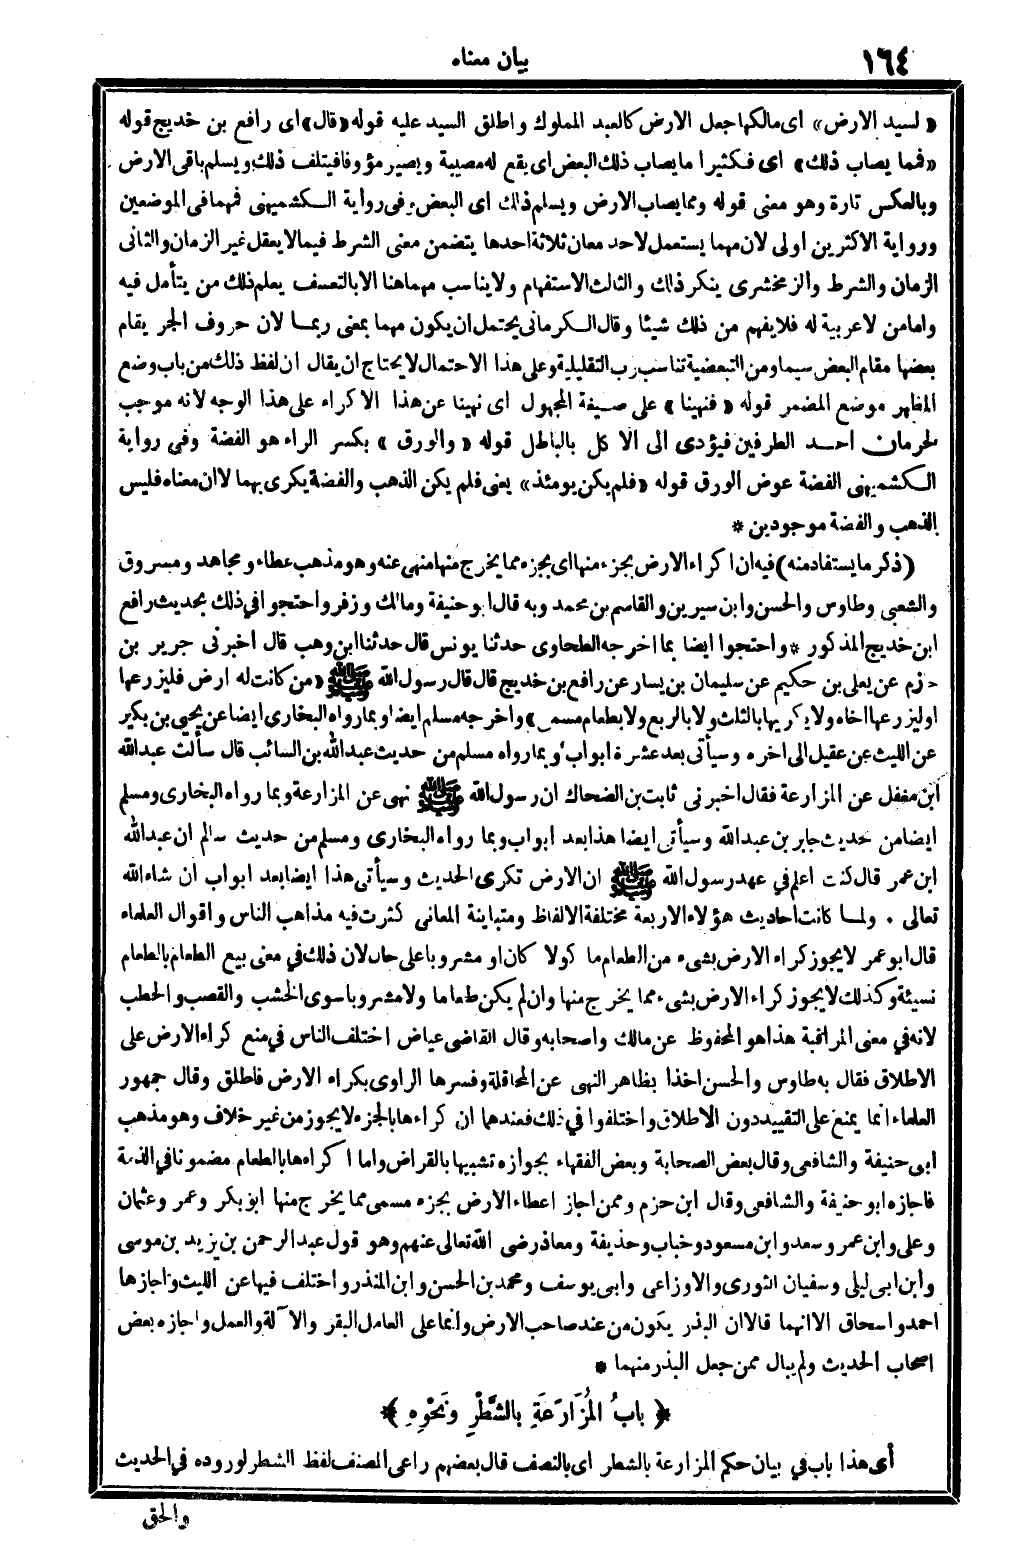 ١٦٤
بيان معناه
« لسيد الارض » اى مالكها جعل الارض كالعبد المملوك واطلق السيد عليه قوله « قال » اى رافع بن خديج قوله
« فما يصاب ذلك » اى فكثيرا ما يصاب ذلك البعض اى يقع له مصيبة ويصير مؤوفا فيتلف ذلك ويسلم باقى الارض
وبالعكس تارة وهو معنى قوله ومما يصاب الارض ويسلم ذلك اى البعض وفى رواية الكشميهنى فمهما فى الموضعين
ورواية الاكثرين اولى لان مهما يستعمل لاحد معان ثلاثة احدها يتضمن معنى الشرط فيما لا يعقل غير الزمان والثانى
الزمان والشرط والزمخشرى ينكر ذلك والثالث الاستفهام ولا يناسب مهما هنا الا بالتعسف يعلم ذلك من يتأمل فيه
وامامن لاعربية له فلا يفهم من ذلك شيئا وقال الكرمانى يحتمل ان يكون مهما بمعنى ربما لان حروف الجر يقام
بعضها مقام البعض سيما ومن التبعضية تناسب رب التقليلية وعلى هذا الاحتمال لا يحتاج ان يقال ان لفظ ذلك من باب وضع
المظهر موضع المضمر قوله « فنهينا » على صيغة المجهول اى نهينا عن هذا الاكراء على هذا الوجه لانه موجب
لحرمان احد الطرفين فيؤدى الى الاكل بالباطل قوله « والورق » بكسر الراء هو الفضة وفى رواية
الكشميهنى الفضة عوض الورق قوله « فلم يكن يومئذ » يعنى فلم يكن الذهب والفضة يكرى بهما لا ان معناه فليس
الذهب والفضة موجودين *
( ذكر ما يستفاد منه ) فيه ان اكراء الارض بجزء منها اى بجزء مما يخرج منها منهى عنه وهو مذهب عطاء ومجاهد ومسروق
والشعبى وطاوس والحسن وابن سيرين والقاسم بن محمد وبه قال ابو حنيفة ومالك وزفر واحتجوا فى ذلك بحديث رافع
ابن خديج المذكور * واحتجوا ايضا بما اخرجه الطحاوى حدثنا يونس قال حدثنا ابن وهب قال اخبرنى جرير بن
حازم عن يعلى بن حكيم عن سليمان بن يسار عن رافع بن خديج قال قال رسول الله ﷺ « من كانت له ارض فليزرعها
اوليزرعها اخاه ولا يكريها بالثلث ولا بالربع ولا بطعام مسمى » واخرجه مسلم ايضا وبما رواه البخارى ايضا عن يحيى بن بكير
عن الليث عن عقيل الى اخره وسيأتى بعد عشرة ابواب وبما رواه مسلم من حديث عبدالله بن السائب قال سألت عبدالله
ابن مغفل عن المزارعة فقال اخبرنى ثابت بن الضحاك ان رسول الله ﷺ نهى عن المزارعة وبما رواه البخارى ومسلم
ايضا من حديث جابر بن عبدالله وسيأتى ايضا هذا بعد ابواب وبما رواه البخارى ومسلم من حديث سالم ان عبدالله
ابن عمر قال كنت اعلم فى عهد رسول الله ﷺ ان الارض تكرى الحديث وسيأتى هذا ايضا بعد ابواب ان شاء الله
تعالى . ولما كانت احاديث هؤلاء الاربعة مختلفة الالفاظ ومتباينة المعانى كثرت فيه مذاهب الناس واقوال العلماء
قال ابو عمر لا يجوز كراء الارض بشىء من الطعام ما كولا كان او مشروبا على حال لان ذلك فى معنى بيع الطعام بالطعام
نسيئة وكذلك لا يجوز كراء الارض بشىء مما يخرج منها وان لم يكن طعاما ولا مشروبا سوى الخشب والقصب والحطب
لانه فى معنى المراقبة هذا هو المحفوظ عن مالك واصحابه وقال القاضى عياض اختلف الناس فى منع كراء الارض على
الاطلاق فقال به طاوس والحسن اخذا بظاهر النهى عن المحاقلة وفسرها الراوى بكراء الارض فاطلق وقال جمهور
العلماء انما يمنع على التقييد دون الاطلاق واختلفوا فى ذلك فعندهما ان كراءها بالجزء لا يجوز من غير خلاف وهو مذهب
ابى حنيفة والشافعى وقال بعض الصحابة وبعض الفقهاء بجوازه تشبيها بالقراض واما اكراءها بالطعام مضمونا فى الذمة
فاجازه ابو حنيفة والشافعى وقال ابن حزم وممن اجاز اعطاء الارض بجزء مسمى مما يخرج منها ابو بكر وعمر وعثمان
وعلى وابن عمر وسعد وابن مسعود وخباب وحذيفة ومعاذ رضى الله تعالى عنهم وهو قول عبد الرحمن بن يزيد بن موسى
وابن ابى ليلى وسفيان الثورى والاوزاعى وابى يوسف ومحمد بن الحسن وابن المنذر واختلف فيها عن الليث واجازها
احمد واسحاق الا انهما قالا ان البذر يكون من عند صاحب الارض وانما على العامل البقر والآلة والعمل واجازه بعض
اصحاب الحديث ولم يبال ممن جعل البذر منهما *
﴿ بابُ المُزَارَعَةِ بِالشَّطْرِ ونَحْوِهِ ﴾
أى هذا باب فى بيان حكم المزارعة بالشطر اى بالنصف قال بعضهم راعى المصنف لفظ الشطر لوروده فى الحديث
والحق